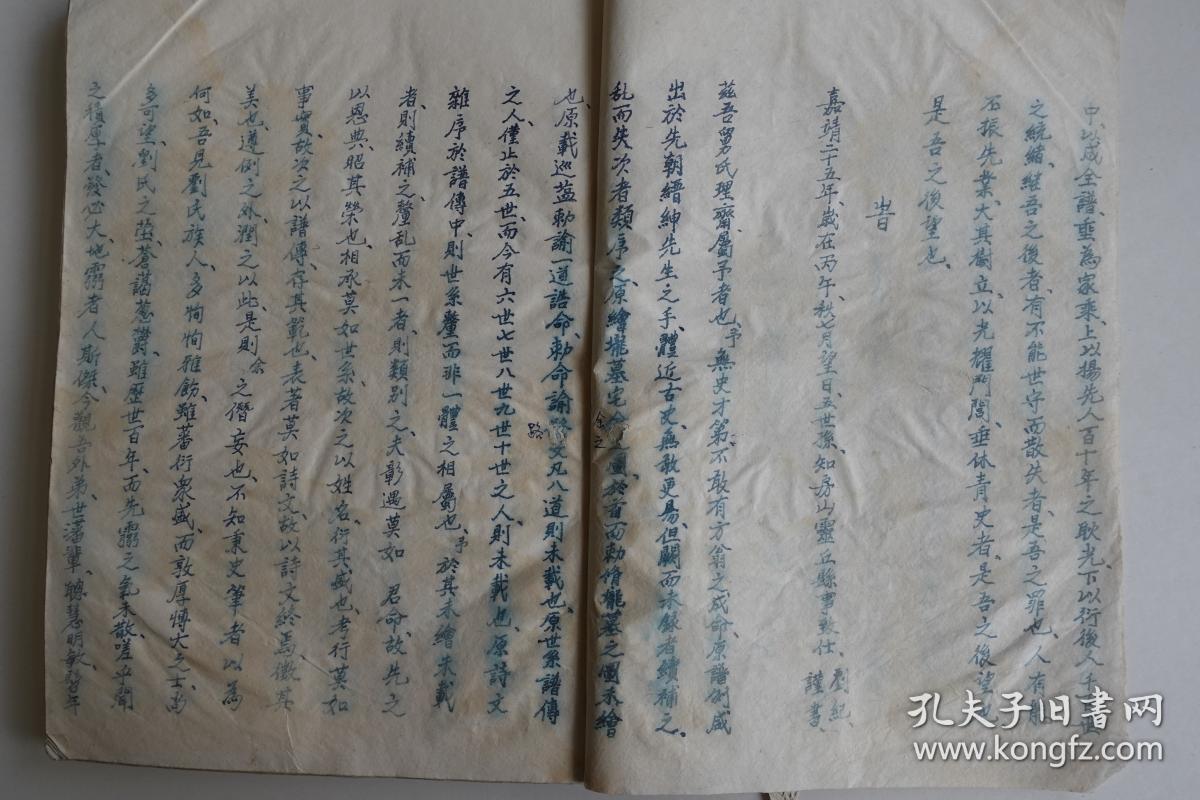 中以成全譜、垂為家乘、上以揚先人百十年之耿光、下以衍後人千
之統緒、繼吾之後者有不能世守而散失者、是吾之罪也、人有能
丕振先業、大其樹立、以光耀門閭、垂休青史者、是吾之後望也
是吾之後望也、
旹
嘉靖二十五年、歲在丙午秋七月望日、五世孫、知房山靈丘縣事致仕、劉紀謹書、
茲吾舅氏理齋屬予者也、予無史才、第不敢有方翁之成命、原譜創成
出於先朝縉紳先生之手、體近古史、無敢更易、但闕而未錄者續補之、
乱而失次者類序之、原繪壠墓宅舍之圖、於首而勅脩壠墓之圖未繪
也、原載巡藍勅諭一道、誥命、勅命、諭路文凡八道則未載也、原世系譜傳
之人、僅止於五世、而今有六世七世八世九世十世之人、則未載也、原詩文
雜序於譜傳中、則世系釐而非一體之相屬也、予於其未繪未載
者、則續補之、釐乱而未一者、則類別之、夫彰遇莫如 君命、故先之
以恩典、昭其榮也、相承莫如世系、故次之以姓名、衍其盛也、考行莫如
事實、故次之以譜傳、存其範也、表著莫如詩文、故以詩文終焉、徵其
美也、遵例之外、潤之以此、是則余之僭妄也、不知秉史筆者以為
何如、吾見劉氏族人、多恂恂雅飭、雖蕃衍衆盛、而敦厚博大之士、尚
多可望、劉氏之塋、蒼藹葱鬱、雖歷世百年、而先靈之氣未散、嗟乎聞
之積厚者、發必大、地靈者、人斯傑、今觀吾外弟、世藩輩、聰慧明敏、髫年